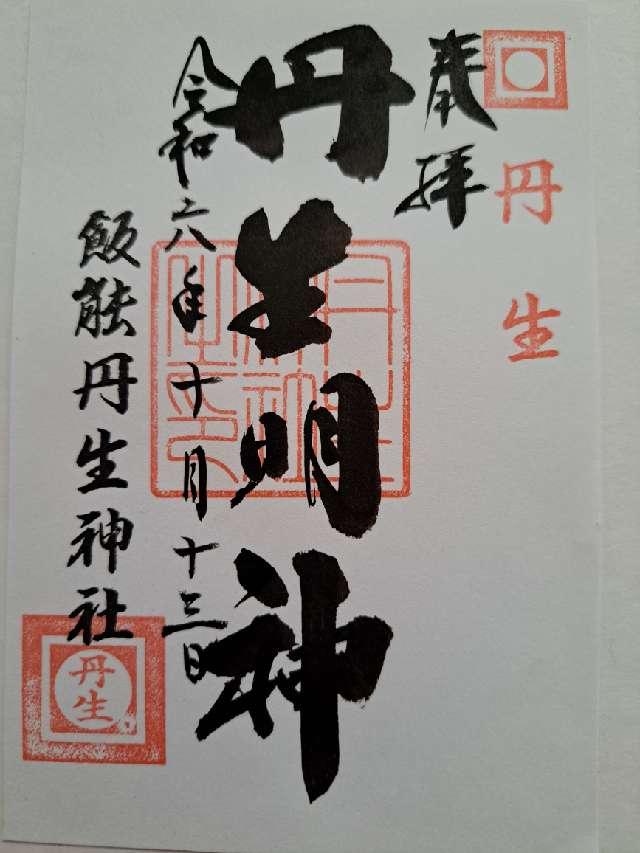 丹生
奉拝
丹生明神
令和六年十月十三日
飯能丹生神社
丹生